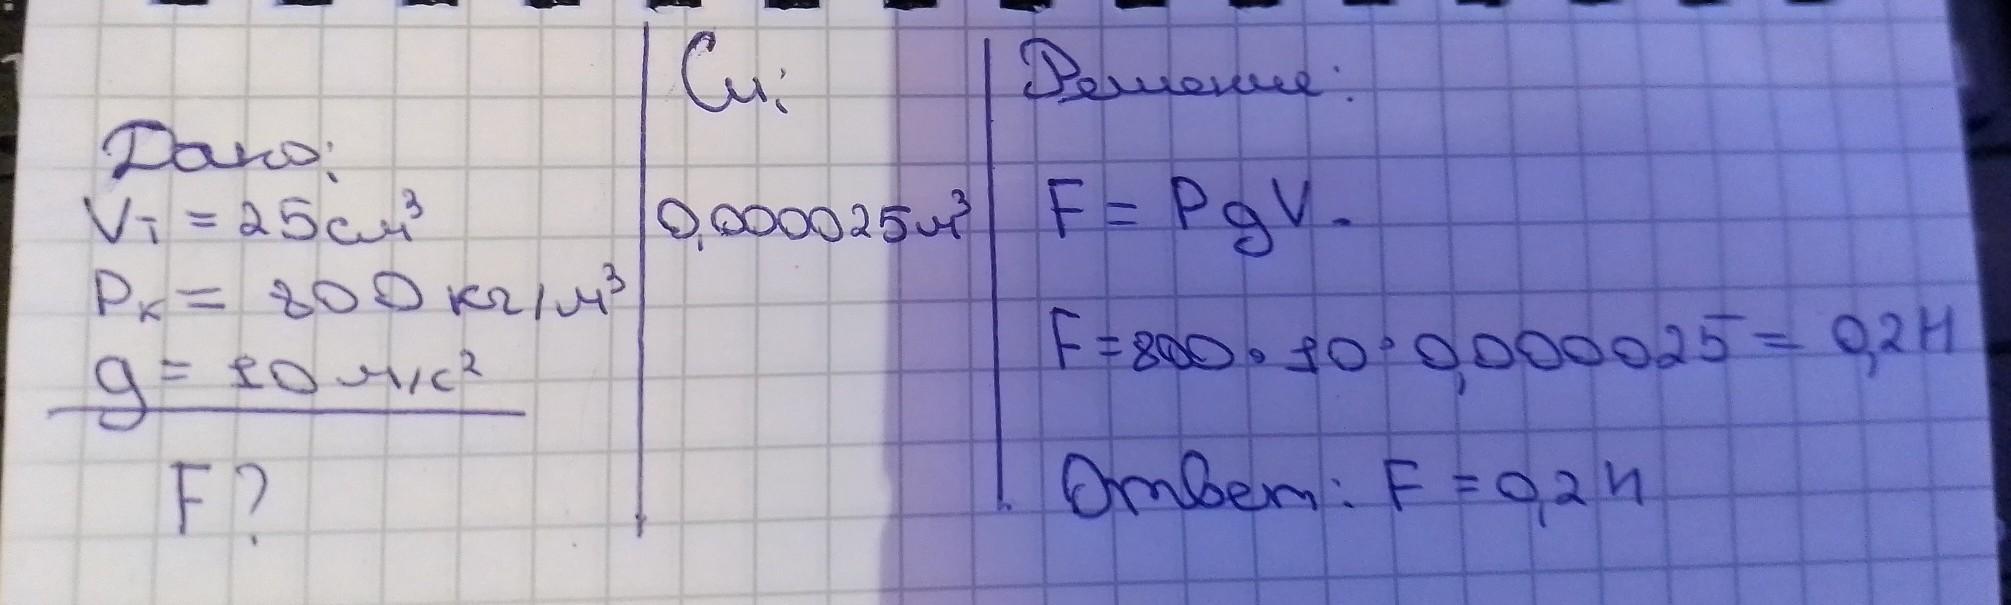 Дано:
Vт = 25 см³
Pк = 800 кг/м³
g = 10 м/с²
F?
Си:
0,000025 м³
Решение:
F = PgV.
F = 800 • 10 • 0,000025 = 0,2 Н
Ответ: F = 0,2 Н